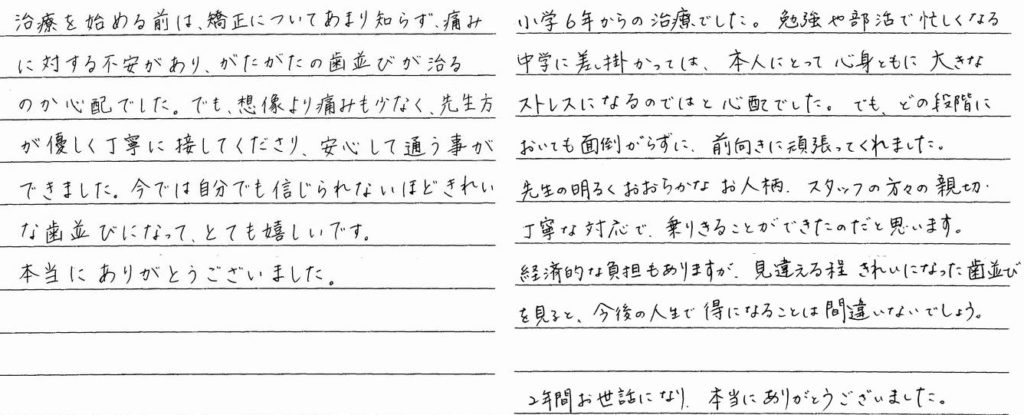 治療を始める前は、矯正についてあまり知らず、痛み
に対する不安があり、がたがたの歯並びが治る
のか心配でした。でも、想像より痛みも少なく、先生方
が優しく丁寧に接してくださり、安心して通う事が
できました。今では自分でも信じられないほどきれい
な歯並びになって、とても嬉しいです。
本当にありがとうございました。
小学6年からの治療でした。勉強や部活で忙しくなる
中学に差し掛かっては、本人にとって心身ともに大きな
ストレスになるのではと心配でした。でも、どの段階に
おいても面倒がらずに、前向きに頑張ってくれました。
先生の明るくおおらかなお人柄、スタッフの方々の親切・
丁寧な対応で、乗りきることができたのだと思います。
経済的な負担もありますが、見違える程きれいになった歯並び
を見ると、今後の人生で得になることは間違いないでしょう。
2年間お世話になり、本当にありがとうございました。